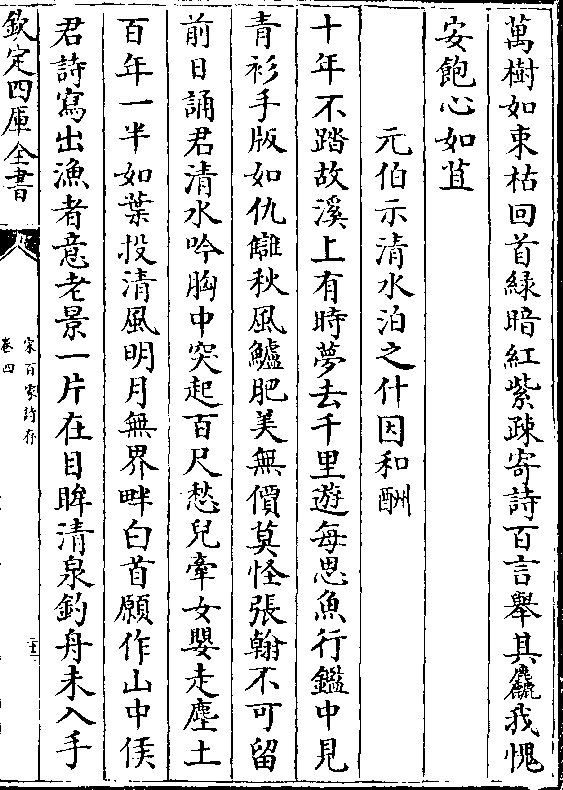 萬樹如束枯回首緑暗紅紫疎寄詩百言舉其麤我愧
安飽心如苴
元伯示清水泊之什因和酬
十年不踏故溪上有時夢去千里遊每思魚行鑑中見
青衫手版如仇讎秋風鱸肥美無價莫怪張翰不可留
前日誦君清水吟胸中突起百尺愁兒牽女嬰走塵土
百年一半如葉投清風明月無界畔白首願作山中侯
君詩寫出漁者意老景一片在目眸清泉釣舟未入手
欽定四庫全書
宋百家詩存
卷四